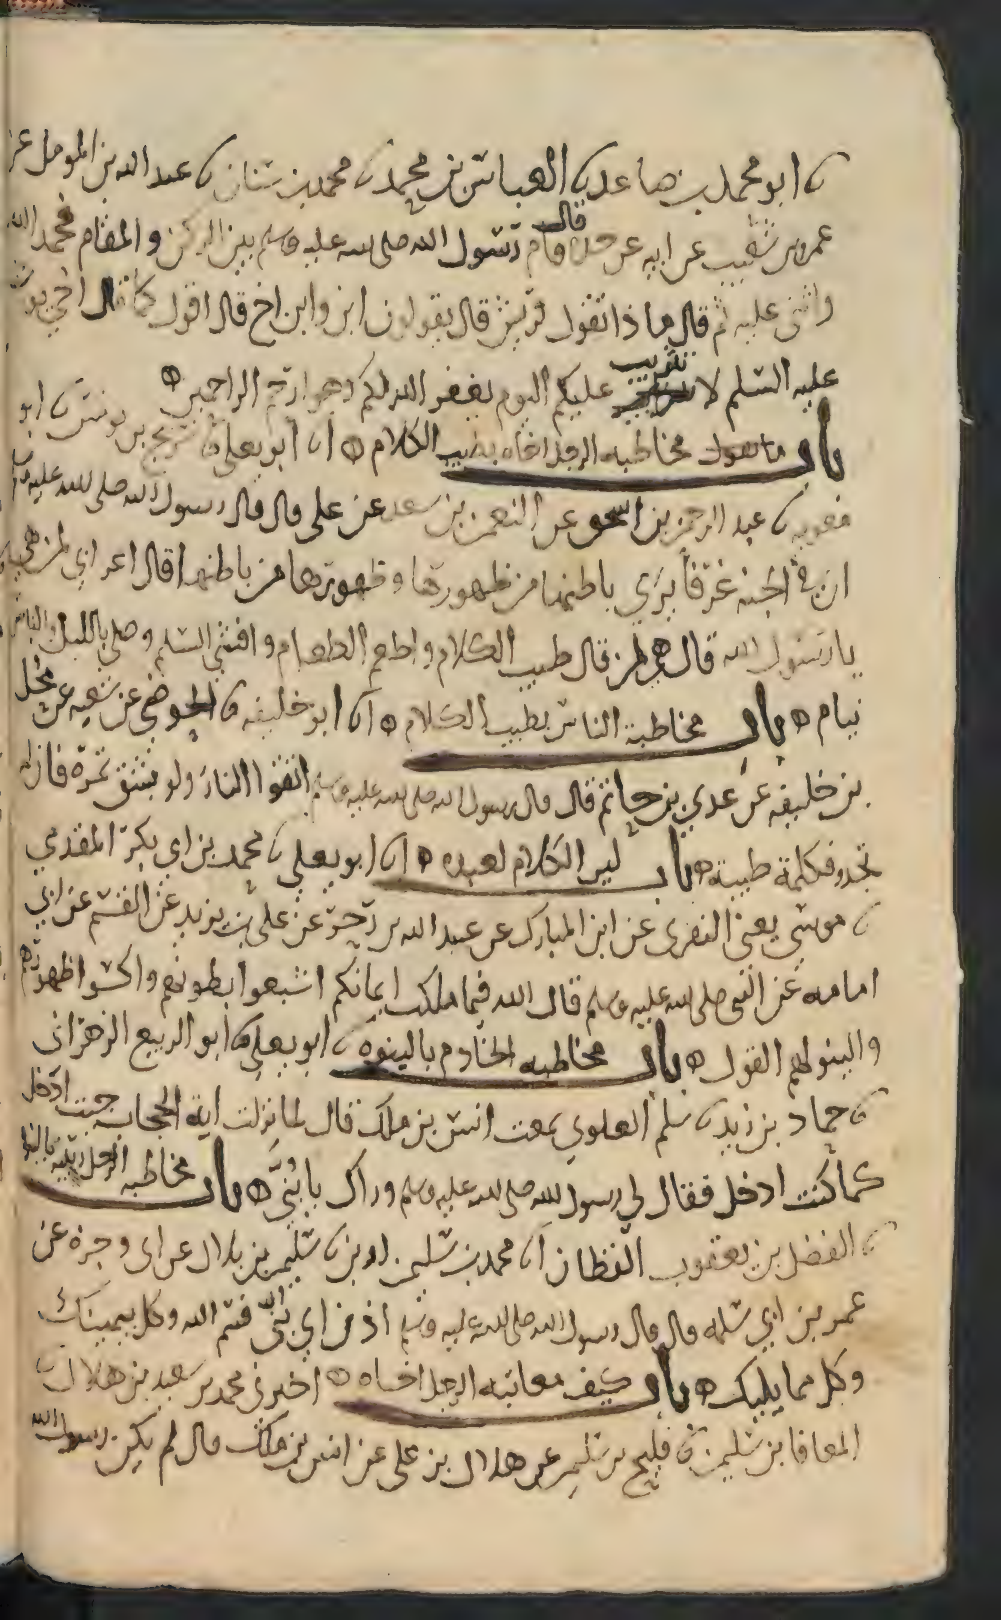 ثنا ابو محمد بن صاعد ثنا العباس بن محمد ثنا محمد بن سنان ثنا عبد الله بن المومل عن
عمرو بن شعيب عن ابيه عن جده قال قام رسول الله صلى الله عليه وسلم بين الركن والمقام فحمد الله
واثنى عليه ثم قال ماذا تقول قريش قال يقولون ابن وابن اخ قال اقول كما قال اخي يوسف
عليه السلم لا تثريب عليكم اليوم يغفر الله لكم وهو ارحم الراحمين
باب ما يقول مخاطبه الرجل اخاه بطيب الكلام انا ابو يعلى ثنا سريج بن يونس ثنا ابو
معوية ثنا عبد الرحمن بن اسحق عن النعمن بن سعد عن علي قال قال رسول الله صلى الله عليه وسلم
ان في الجنه غرفا يرى باطنها من ظهورها وظهورها من باطنها فقال اعرابي لمن هي
يا رسول الله قال هي لمن قال طيب الكلام واطعم الطعام وافشى السلم وصلى بالليل والناس
نيام باب مخاطبة الناس بطيب الكلام انا ابو خليفه ثنا الحوضي عن شعبه عن محل
بن خليفه عن عدي بن حاتم قال قال رسول الله صلى الله عليه وسلم اتقوا النار ولو بشق تمرة فان لم
تجدو فكلمة طيبة باب لين الكلام لعبده انا ابو يعلى ثنا محمد بن ابي بكر المقدمي
ثنا موسى يعني عن ابن المبارك عن عبيد الله بن زحر عن علي بن يزيد عن القسم عن ابي
امامه عن النبي صلى الله عليه وسلم قال الله فيما ملكت ايمانكم اشبعوا بطونهم واكسوا ظهورهم
والينو لهم القول باب مخاطبه الخادم بالبنوه ثنا ابو يعلى ثنا ابو الربيع الزهراني
ثنا حماد بن زيد ثنا سلم العلوي سمعت انس بن ملك قال لما نزلت اية الحجاب جيت ادخل
كما كنت ادخل فقال لي رسول الله صلى الله عليه وسلم وراك يا بني باب مخاطبه الرجل ربيبه بالبنوه
ثنا الفضل بن يعقوب القطان انا محمد بن سليمن ثنا سليمن بن بلال عن ابي وجزة عن
عمر بن ابي سلمه قال قال رسول الله صلى الله عليه وسلم اذن اي بني فسم الله وكل بيمينك
وكل مما يليك باب كيف معاتبه الرجل اخاه اخبرني محمد بن سعيد بن هلال ثنا
المعافا بن سليمن ثنا فليح بن سليمن عن هلال بن علي عن انس بن ملك قال لم يكن رسول الله